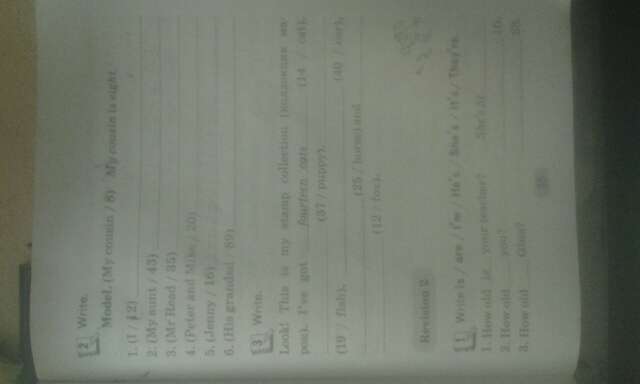 2 Write.
Model. (My cousin / 8) My cousin is eight.
1. (I / 12)
2. (My aunt / 43)
3. (Mr Read / 35)
4. (Peter and Mike / 20)
5. (Jenny / 16)
6. (His grandad / 89)
3 Write.
Look! This is my stamp collection (коллекция ма-
рок). I've got fourteen cats (14 / cat),
(37 / puppy),
(19 / fish), (40 / cow),
(25 / horse) and
(12 / fox).
Revision 2
1 Write is / are / I'm / He's / She's / It's / They're.
1. How old is your teacher? She's
2. How old you? 10.
3. How old